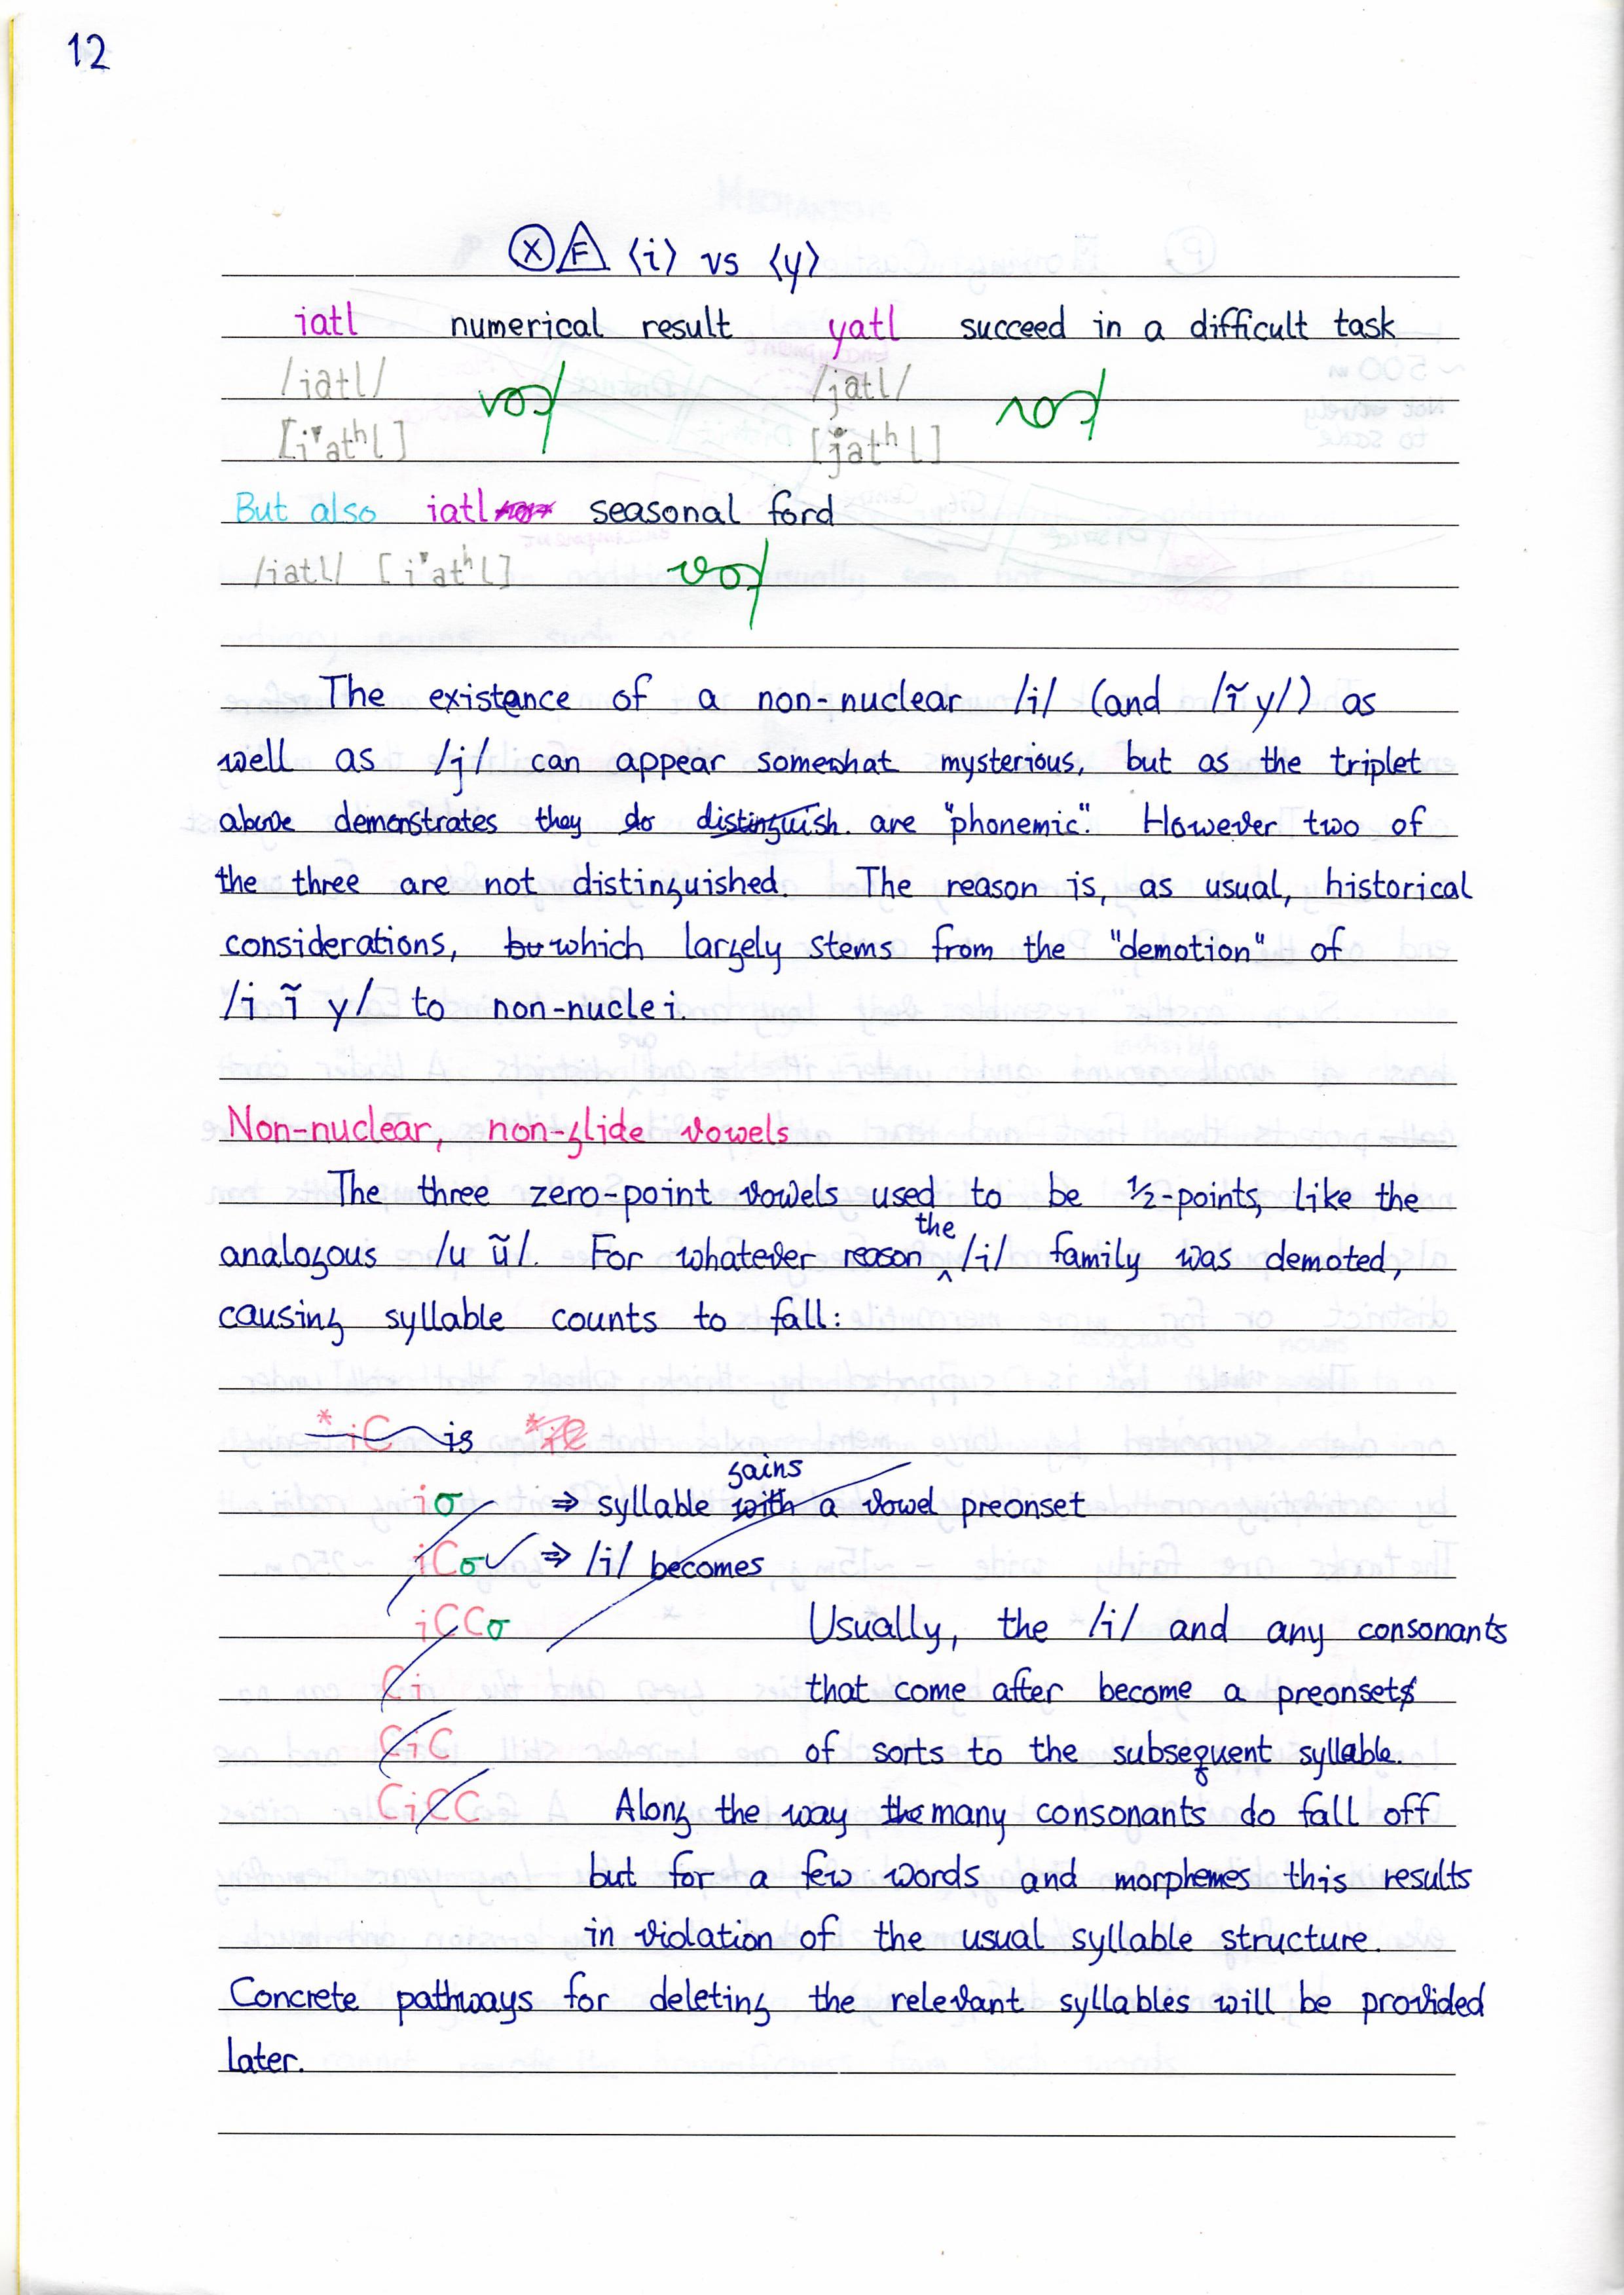 12
Ⓧ F ⟨i⟩ vs ⟨y⟩
iatl numerical result yatl succeed in a difficult task
/iatl/ /jatl/
[iˇatʰl] [jatʰl]
But also iatl seasonal ford
/iatl/ [iˇatʰl]
The existence of a non-nuclear /i/ (and /ĩ y/) as
well as /j/ can appear somewhat mysterious, but as the triplet
above demonstrates they do distinguish are "phonemic". However two of
the three are not distinguished. The reason is, as usual, historical
considerations, but which largely stems from the "demotion" of
/i ĩ y/ to non-nuclei.
Non-nuclear, non-glide vowels
The three zero-point vowels used to be ½-points, like the
analogous /u ũ/. For whatever reason the /i/ family was demoted,
causing syllable counts to fall:
*iC is *iC
iσ ⇒ syllable with gains a vowel preonset
iCσ ⇒ /i/ becomes
iCCσ Usually, the /i/ and any consonants
Ci that come after become a preonsets
CiC of sorts to the subsequent syllable.
CiCC Along the way the many consonants do fall off
but for a few words and morphemes this results
in violation of the usual syllable structure.
Concrete pathways for deleting the relevant syllables will be provided
later.